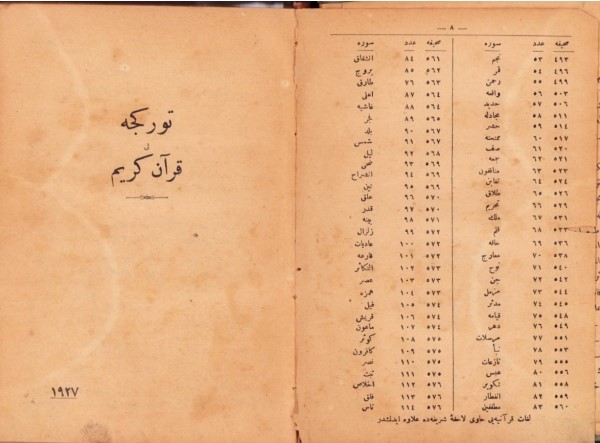 — ٨ —
صحيفه عدد سوره
٤٩٣ ٥٣ نجم
٤٩٦ ٥٤ قمر
٤٩٩ ٥٥ رحمن
٥٠٣ ٥٦ واقعه
٥٠٧ ٥٧ حديد
٥١١ ٥٨ مجادله
٥١٤ ٥٩ حشر
٥١٧ ٦٠ ممتحنه
٥٢٠ ٦١ صف
٥٢١ ٦٢ جمعه
٥٢٣ ٦٣ منافقون
٥٢٤ ٦٤ تغابن
٥٢٦ ٦٥ طلاق
٥٢٩ ٦٦ تحريم
٥٣١ ٦٧ ملك
٥٣٣ ٦٨ قلم
٥٣٦ ٦٩ حاقه
٥٣٨ ٧٠ معارج
٥٤٠ ٧١ نوح
٥٤٢ ٧٢ جن
٥٤٤ ٧٣ مزمل
٥٤٥ ٧٤ مدثر
٥٤٨ ٧٥ قيامه
٥٤٩ ٧٦ دهر
٥٥١ ٧٧ مرسلات
٥٥٣ ٧٨ نبأ
٥٥٥ ٧٩ نازعات
٥٥٦ ٨٠ عبس
٥٥٨ ٨١ تكوير
٥٥٩ ٨٢ انفطار
٥٦٠ ٨٣ مطففين
صحيفه عدد سوره
٥٦١ ٨٤ انشقاق
٥٦٢ ٨٥ بروج
٥٦٣ ٧٦ طارق
٥٦٤ ٨٧ اعلى
٥٦٤ ٨٨ غاشيه
٥٦٥ ٨٩ فجر
٥٦٧ ٩٠ بلد
٥٦٧ ٩١ شمس
٥٦٨ ٩٢ ليل
٥٦٩ ٩٣ ضحى
٥٦٩ ٩٤ انشراح
٥٦٩ ٩٥ تين
٥٧٠ ٩٦ علق
٥٧٠ ٩٧ قدر
٥٧١ ٩٨ بينه
٥٧٢ ٩٩ زلزال
٥٧٢ ١٠٠ عاديات
٥٧٢ ١٠١ قارعه
٥٧٣ ١٠٢ التكاثر
٥٧٣ ١٠٣ عصر
٥٧٣ ١٠٤ همزه
٥٧٤ ١٠٥ فيل
٥٧٤ ١٠٦ قريش
٥٧٤ ١٠٧ ماعون
٥٧٥ ١٠٨ كوثر
٥٧٥ ١٠٩ كافرون
٥٧٥ ١١٠ نصر
٥٧٦ ١١١ تبت
٥٧٦ ١١٢ اخلاص
٥٧٦ ١١٣ فلق
٥٧٦ ١١٤ ناس
لغات قرآنيه‌يى حاوى لاحقهٔ شريفه‌ده علاوه ايدلمشدر
توركجه
قرآن كريم
١٩٢٧